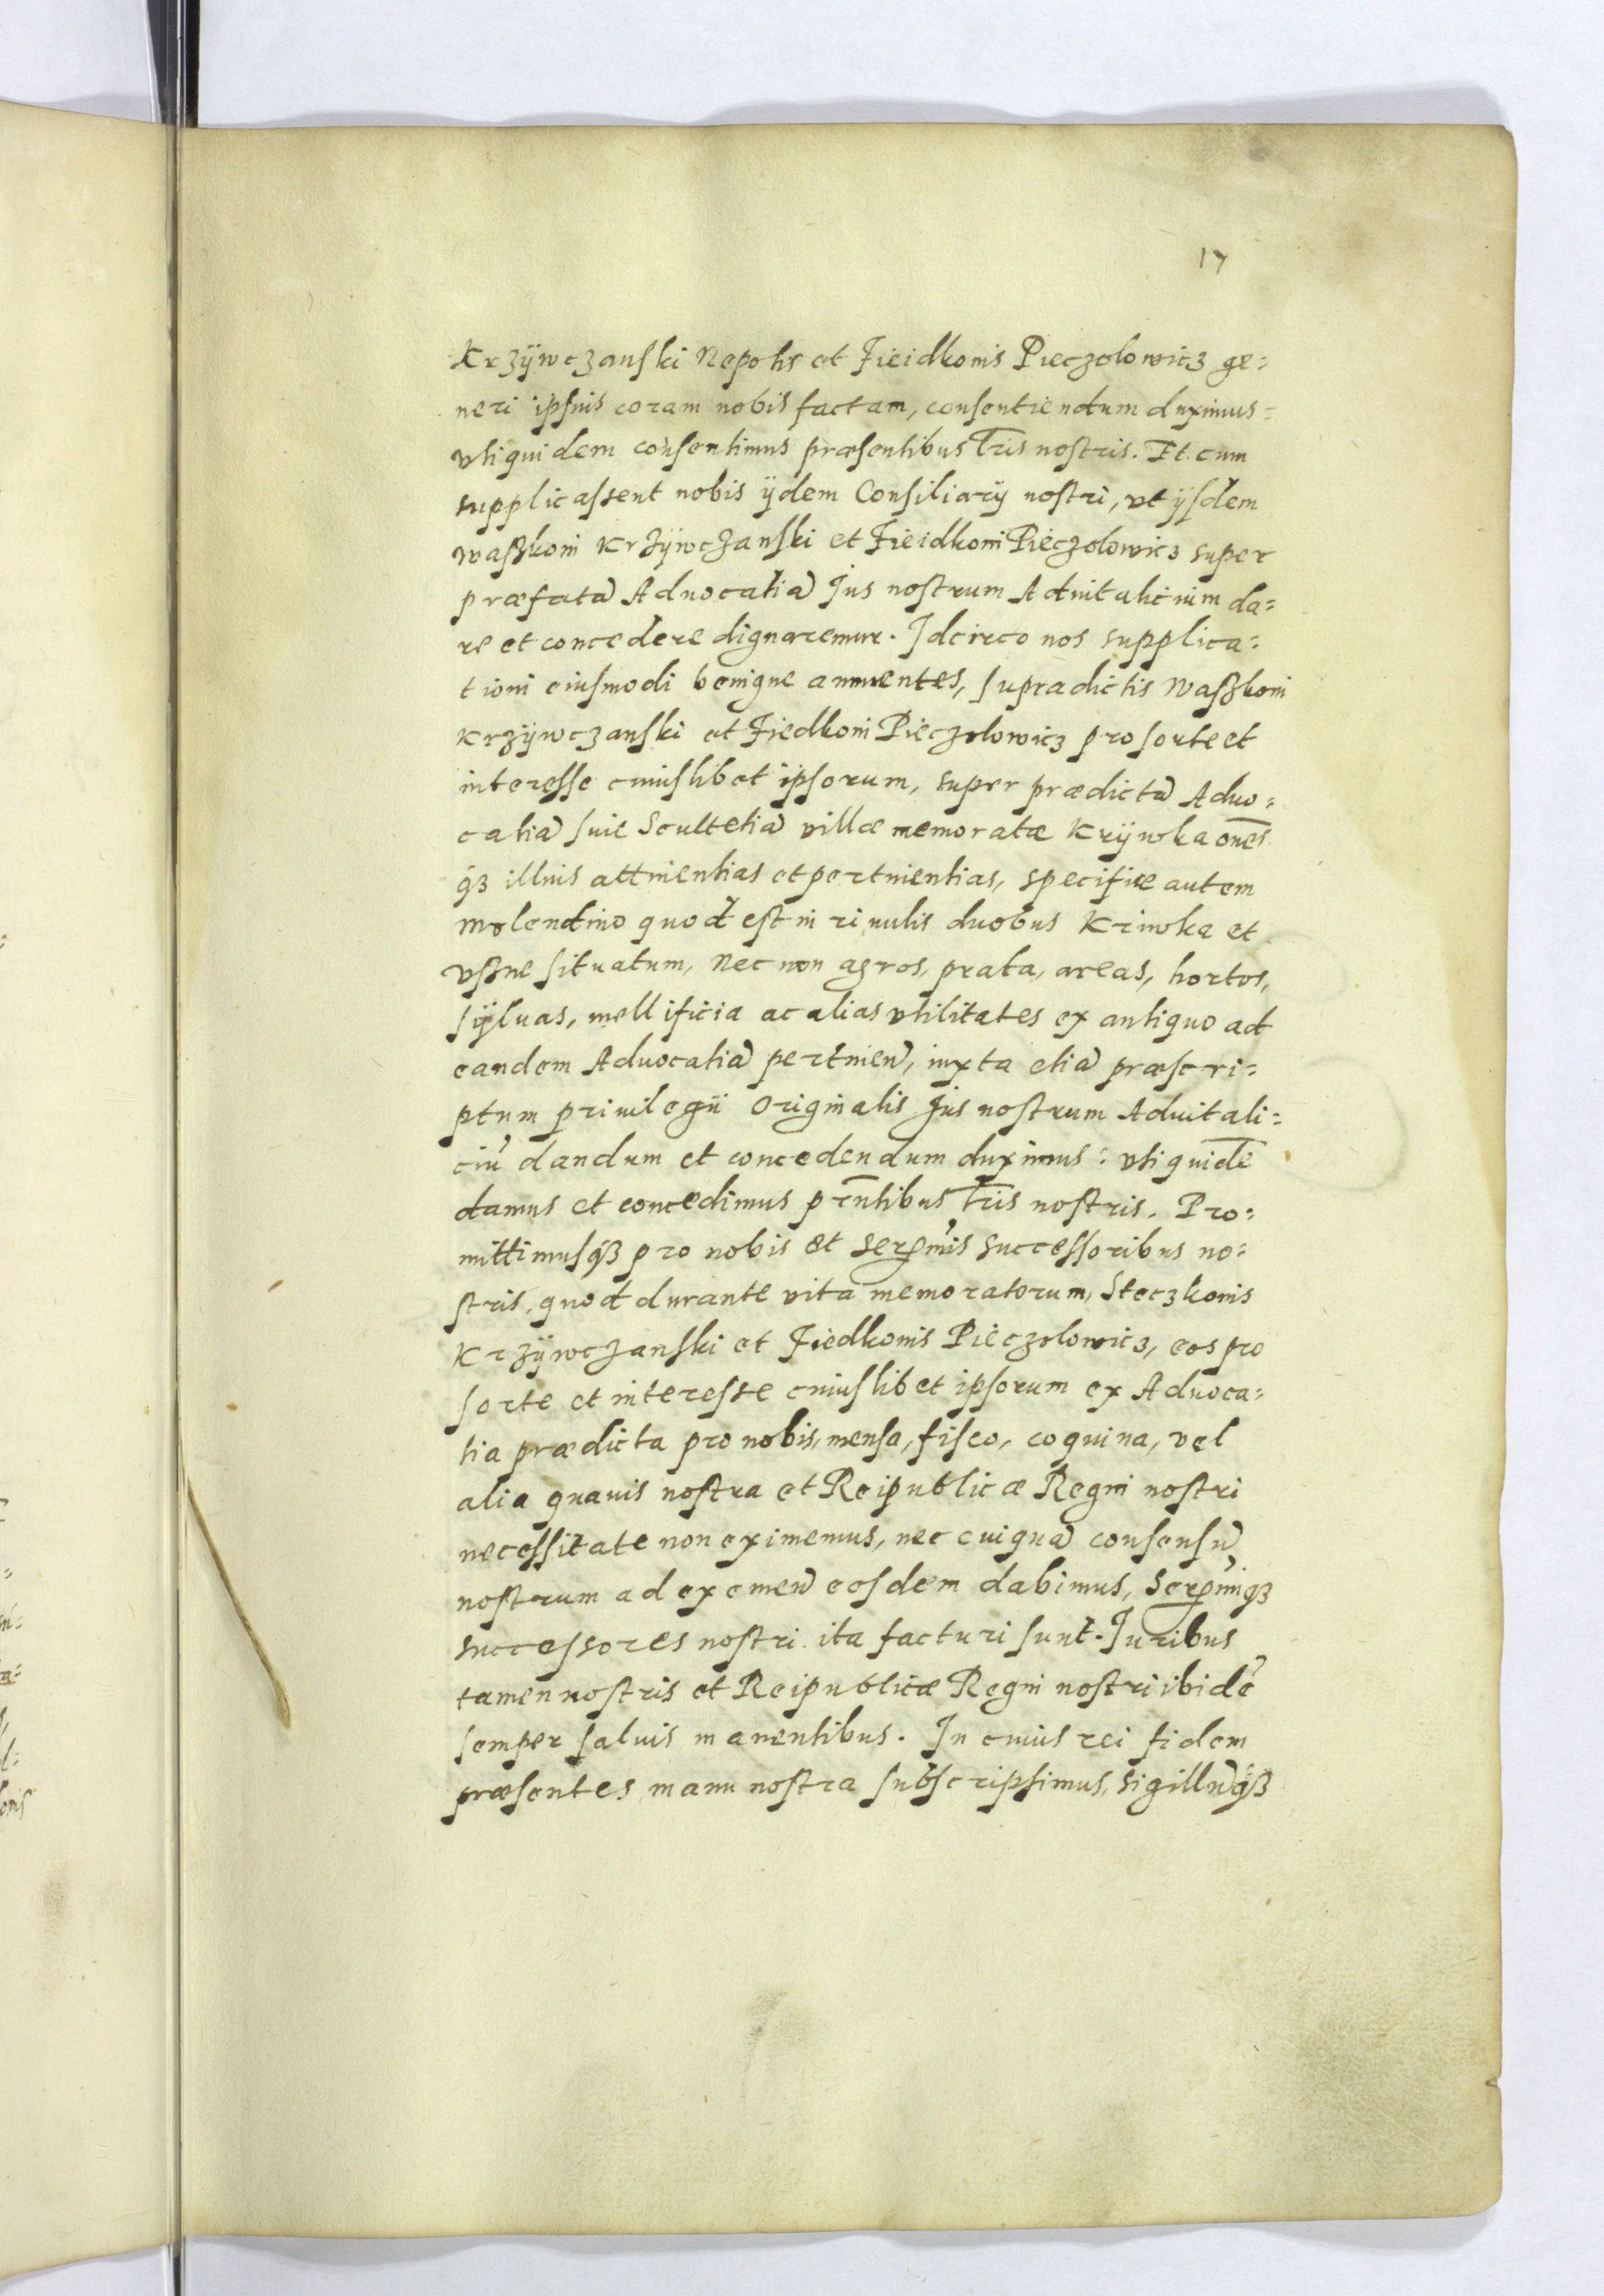 17
Krzÿwczanski Nepotis et Fieidkonis Pieczolowicz ge=
neri ipsius coram nobis factam, consentiendum duximus=
vtiquidem consentimus præsentibus Lr̅is nostris. Et cum
supplicassent nobis ijdem Consiliarÿ nostri, vt ÿsdem
Waszkoni Krzÿwczanski et Fieidkoni Pieczolowicz super
præfatã Aduocatiã Jus nostrum Aduitalicium da=
re et concedere dignaremur. Idcirco nos supplica=
tioni eiusmodi benigne annuentes, supradictis Waszkoni
Krzÿwczanski et Fiedkoni Pieczolowicz pro sorte et
interesse cuiuslibet ipsorum, super prædictã Aduo=
catiã siue Scultetiã villæ memoratæ Krÿwka om̅es
qꝫ illius attinentias et pertinentias, specifice autem
molendino quod est in riuulis duobus Kriwka et
vszne situatum, Nec non agros, prata, areas, hortos,
sÿluas, mellificia ac alias vtilitates ex antiquo ad
eandem Aduocatiã pertinen̅, iuxta etiã præscri=
ptum priuilegii Originalis Jus nostrum Aduitali=
ciũ dandum et concedendum duximus: vtiquidẽ
damus et concedimus pr̅ntibus Lr̅is nostris. Pro=
mittimusqꝫ pro nobis et Serp̅mis successoribus no=
stris, quod durante vita memoratorum, Steczkonis
Krzÿwczanski et Fiedkonis Pieczolowicz, eos pro
sorte et interesse cuiuslibet ipsorum ex Aduoca=
tia prædicta pro nobis, mensa, fisco, coquina, vel
alia quauis nostra et Reipublicæ Regni nostri
necessitate non eximemus, nec cuiquã consensũ
nostrum ad exemen̅ eosdem dabimus, Serp̅miqꝫ
successores nostri ita facturi sunt. Juribus
tamen nostris et Reipublicæ Regni nostri ibidẽ
semper saluis manentibus. In cuius rei fidem
præsentes manu nostra subscripsimus, sigillũqꝫ